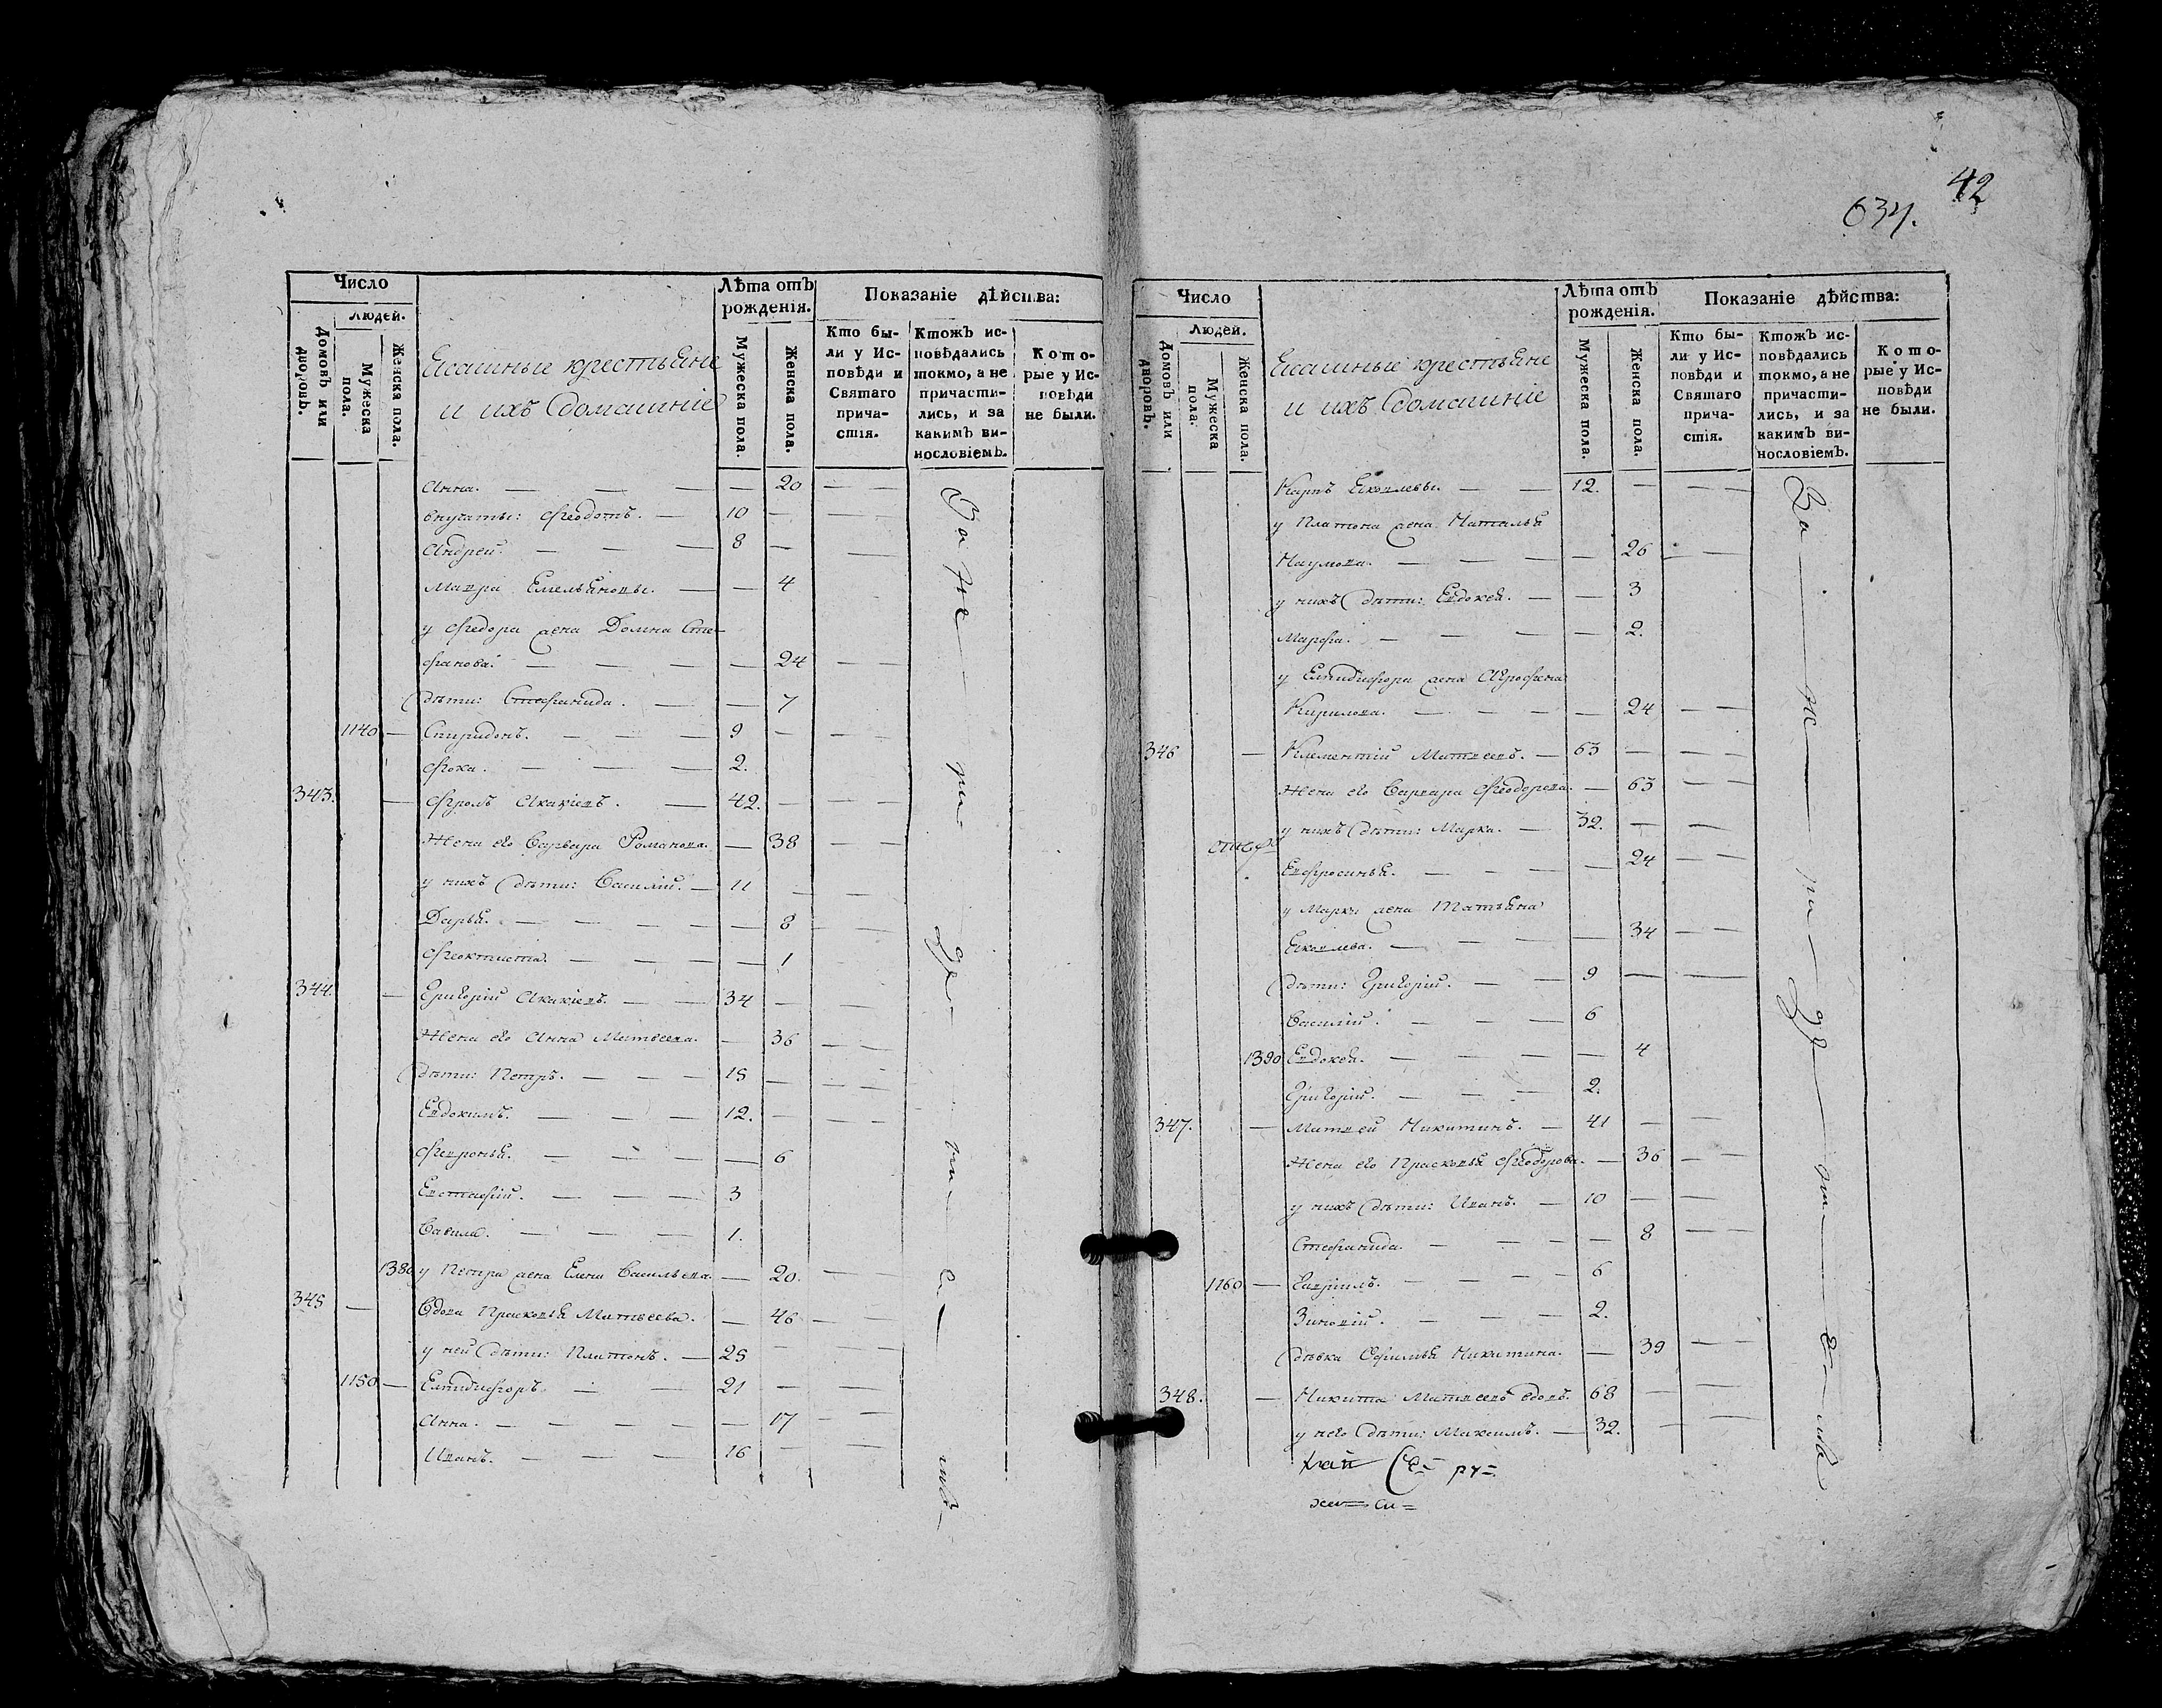 42
634.
Число
Людей.
Домовъ или дворовъ.
Мужеска пола.
Женска пола.
Ясашные крестьяне
и ихъ домашніе
Лѣта отъ рожденія.
Мужеска пола.
Женска пола.
Показаніе дѣйства:
Кто были у Исповѣди и Святаго причастія.
Ктожъ исповѣдались токмо, а не причастились, и за какимъ винословіемъ.
Которые у Исповѣди не были.
Анна. — — — — 20 — —
внучаты: Феодотъ. — 10 — —
Андрей. — — — 8 — —
Мавра Емельяновы. — — 4
у Федора жена Домна Сте-
фанова. — — — — 24 —
дѣти: Стефанида. — — 7
1140 — Спиридонъ. — — — 9 — — —
Фока. — — — 2.
343. — Фролъ Акакіевъ. — 42. — —
Жена его Варвара Романова. — 38 — —
у нихъ дѣти: Василій. — 11 — —
Дарья. — — — — 8 — —
Феоктиста. — — — — 1
344. — Григорій Акакіевъ. — — 34 — —
Жена его Анна Матвеева. — 36 — —
дѣти: Петръ. — — — 15 — — —
Евдокимъ. — — — 12. — — —
Февронья. — — — — 6
Евстафій. — — — 3
Вавила. — — — 1.
1380 у Петра жена Елена Васильева. — 20. — —
345 — Вдова Прасковья Матвеева. — 46 — —
у ней дѣти: Платонъ. — 25 — —
1150 — Елпидифоръ — — 21 — —
Анна. — — — — — 17 — —
Иванъ. — — — — 16 — —
За не ра де ни е мъ
Число
Людей.
Домовъ или дворовъ.
Мужеска пола.
Женска пола.
Ясашные крестьяне
и ихъ домашніе
Лѣта отъ рожденія.
Мужеска пола.
Женска пола.
Показаніе дѣйства:
Кто были у Исповѣди и Святаго причастія.
Ктожъ исповѣдались токмо, а не причастились, и за какимъ винословіемъ.
Которые у Исповѣди не были.
Карпъ Яковлевы. — — 12. — — —
у Платона жена Наталья
Наумова. — — — — 26 — —
у нихъ дѣти: Евдокея. — — 3
Марфа. — — — — 2.
у Елпидифора жена Агрофена
Кирилова. — — — — 24 — —
346 — Климентій Матвеевъ. — 63 — — —
Жена его Варвара Феодорова. — 63 — —
у нихъ дѣти: Марка. — 32. — — —
Евфросинья. — — — — 24 — —
у Марка жена Татьяна
Яковлева. — — — — 34 — —
дѣти: Григорій. — — 9 — — —
Василій. — — — 6
1390 Евдокея. — — — — 4
Григорій. — — — 2.
347. — Матвей Никитинъ. — 41 — —
Жена его Прасковья Феодорова. — 36 — —
у нихъ дѣти: Иванъ. — 10 — —
Стефанида. — — — — 8 — —
1160 — Гавріилъ. — — — — 6
Зиновій. — — — 2.
дѣвка Офимья Никитина. — 39 — —
348. — Никита Матвеевъ вдовъ. 68 — —
у него дѣти: Максимъ. — 32. — —
За не ра де ни е мъ